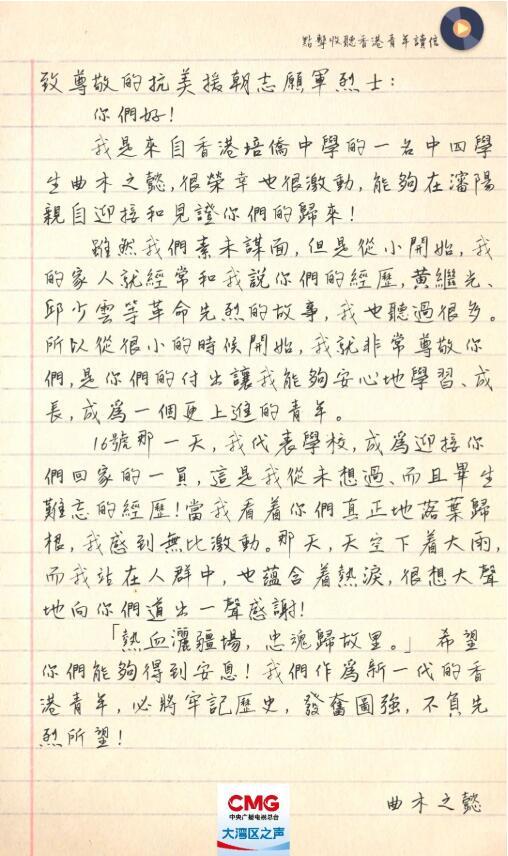 點擊收聽香港青年讀信
致尊敬的抗美援朝志願軍烈士：
你們好！
我是來自香港培僑中學的一名中四學
生曲木之懿，很榮幸也很激動，能夠在瀋陽
親自迎接和見證你們的歸來！
雖然我們素未謀面，但是從小開始，我
的家人就經常和我說你們的經歷，黃繼光、
邱少雲等革命先烈的故事，我也聽過很多。
所以從很小的時候開始，我就非常尊敬你
們，是你們的付出讓我能夠安心地學習、成
長，成爲一個更上進的青年。
16號那一天，我代表學校，成爲迎接你
們回家的一員，這是我從未想過、而且畢生
難忘的經歷！當我看着你們真正地落葉歸
根，我感到無比激動。那天，天空下着大雨，
而我站在人群中，也蘊含着熱淚，很想大聲
地向你們道出一聲感謝！
「熱血灑疆場，忠魂歸故里。」希望
你們能夠得到安息！我們作爲新一代的香
港青年，必將牢記歷史，發奮圖強，不負先
烈所望！
曲木之懿
CMG
中央广播电视总台
大湾区之声